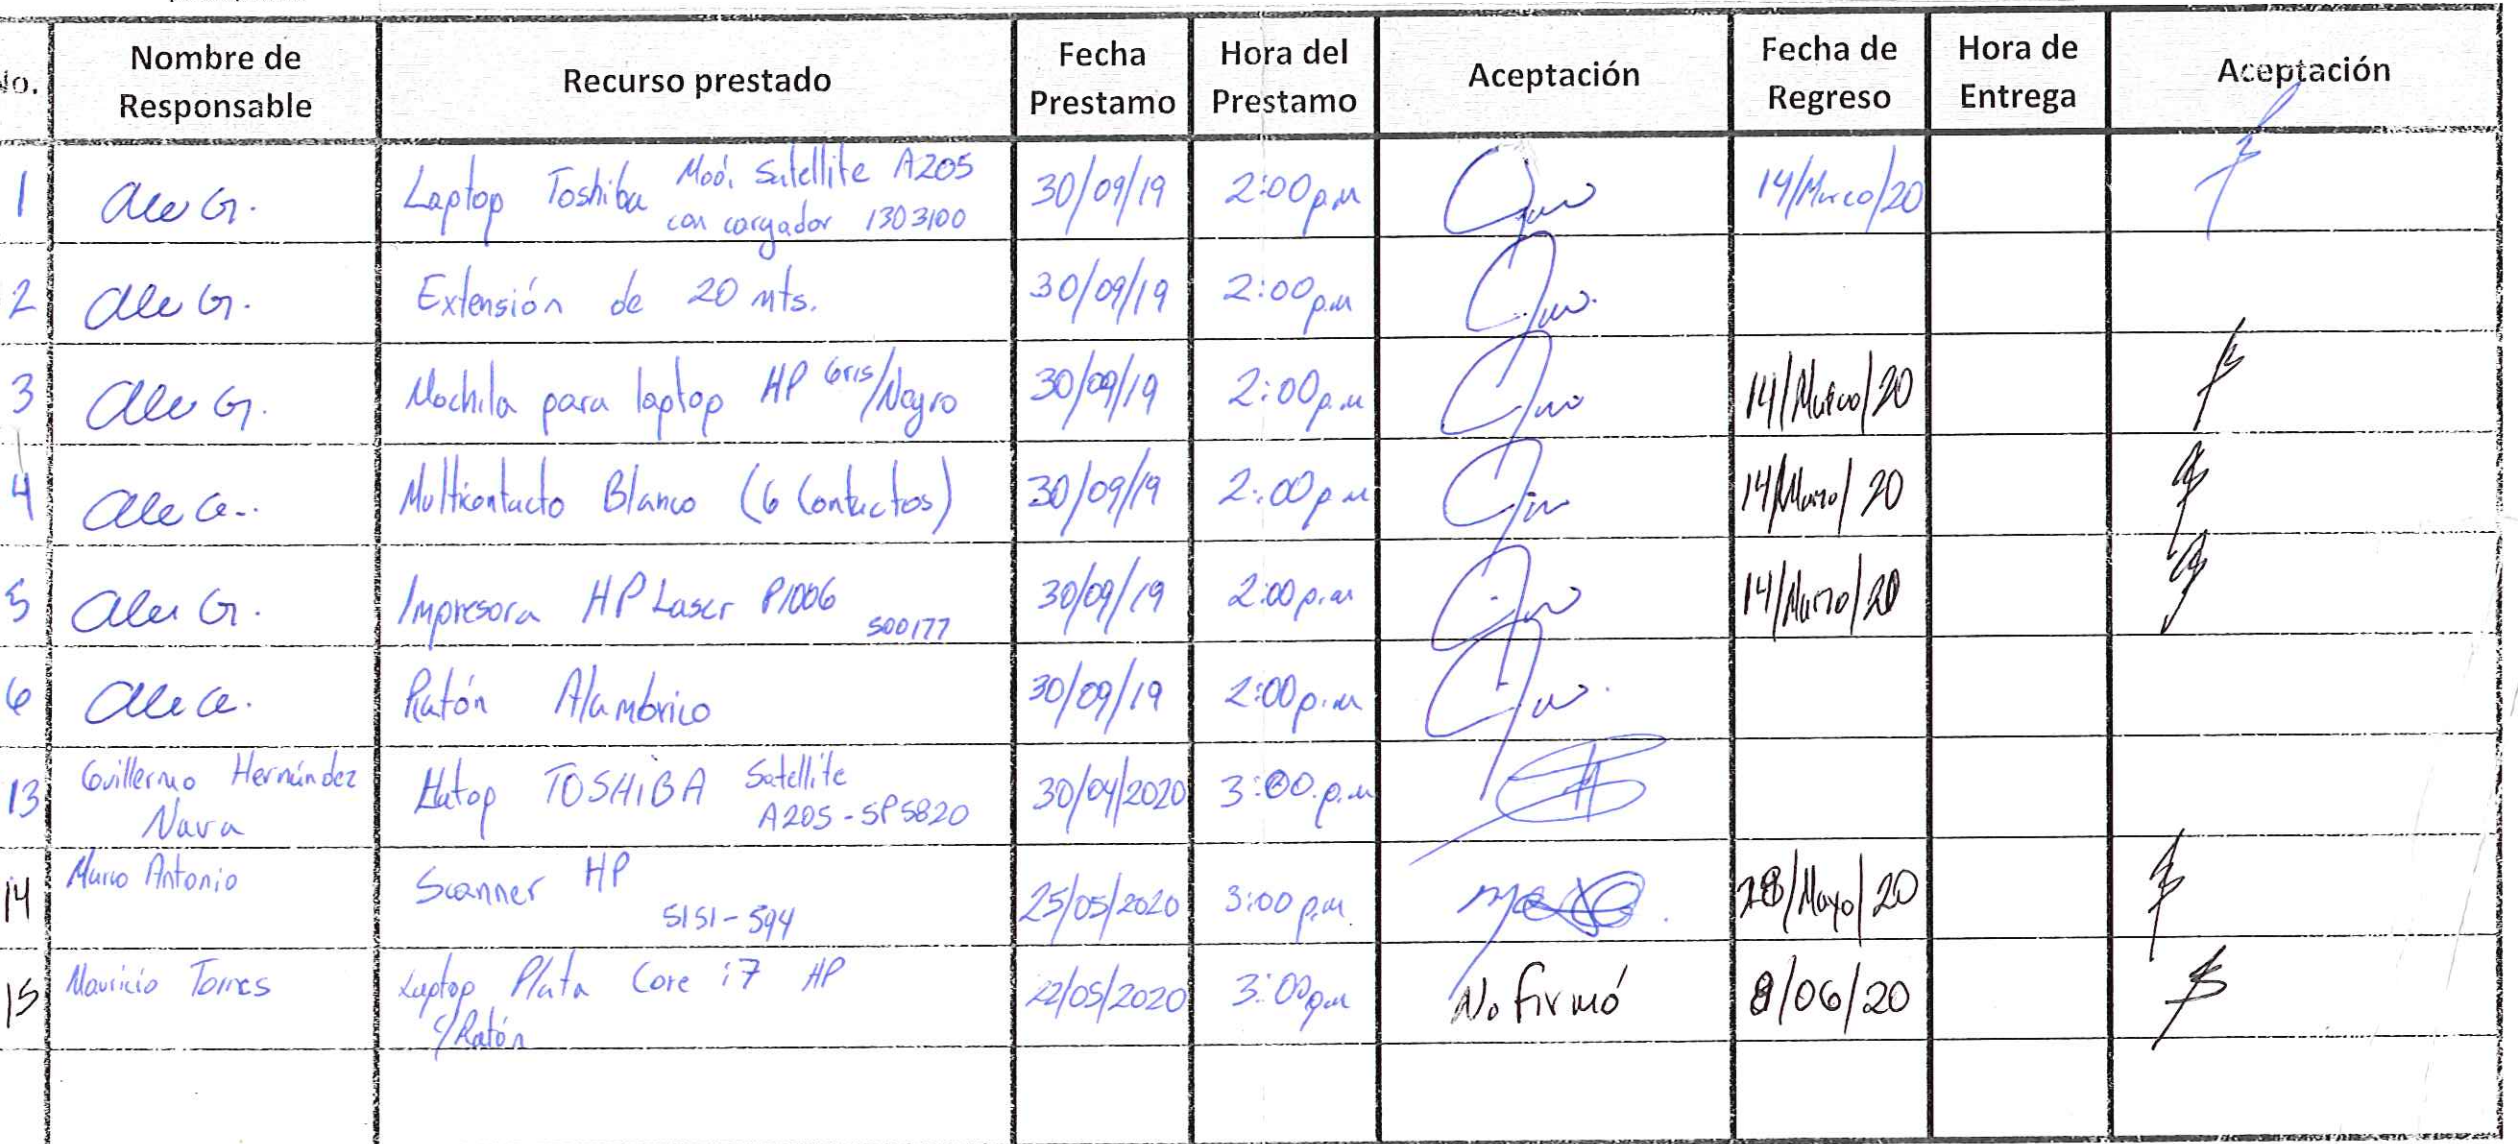 No. Nombre de Responsable Recurso prestado Fecha Prestamo Hora del Prestamo Aceptación Fecha de Regreso Hora de Entrega Aceptación
1 Ale G. Laptop Toshiba Mod. Satellite A205 con cargador 1303100 30/09/19 2:00 p.m 14/Marzo/20
2 Ale G. Extensión de 20 mts. 30/09/19 2:00 p.m
3 Ale G. Mochila para laptop HP Gris/Negro 30/09/19 2:00 p.m 14/Marzo/20
4 Ale G. Multicontacto Blanco (6 Contactos) 30/09/19 2:00 p.m 14/Marzo/20
5 Ale G. Impresora HP Laser P1006 500177 30/09/19 2:00 p.m 14/Marzo/20
6 Ale G. Ratón Alambrico 30/09/19 2:00 p.m
13 Guillermo Hernández Nava TOSHIBA Satellite A205-SP5820 30/04/2020 3:00 p.m
14 Marco Antonio Scanner HP 5151-594 25/05/2020 3:00 p.m. 28/Mayo/20
15 Mauricio Torres Laptop Plata Core i7 HP c/Ratón 22/05/2020 3:00 pm No firmó 8/06/20